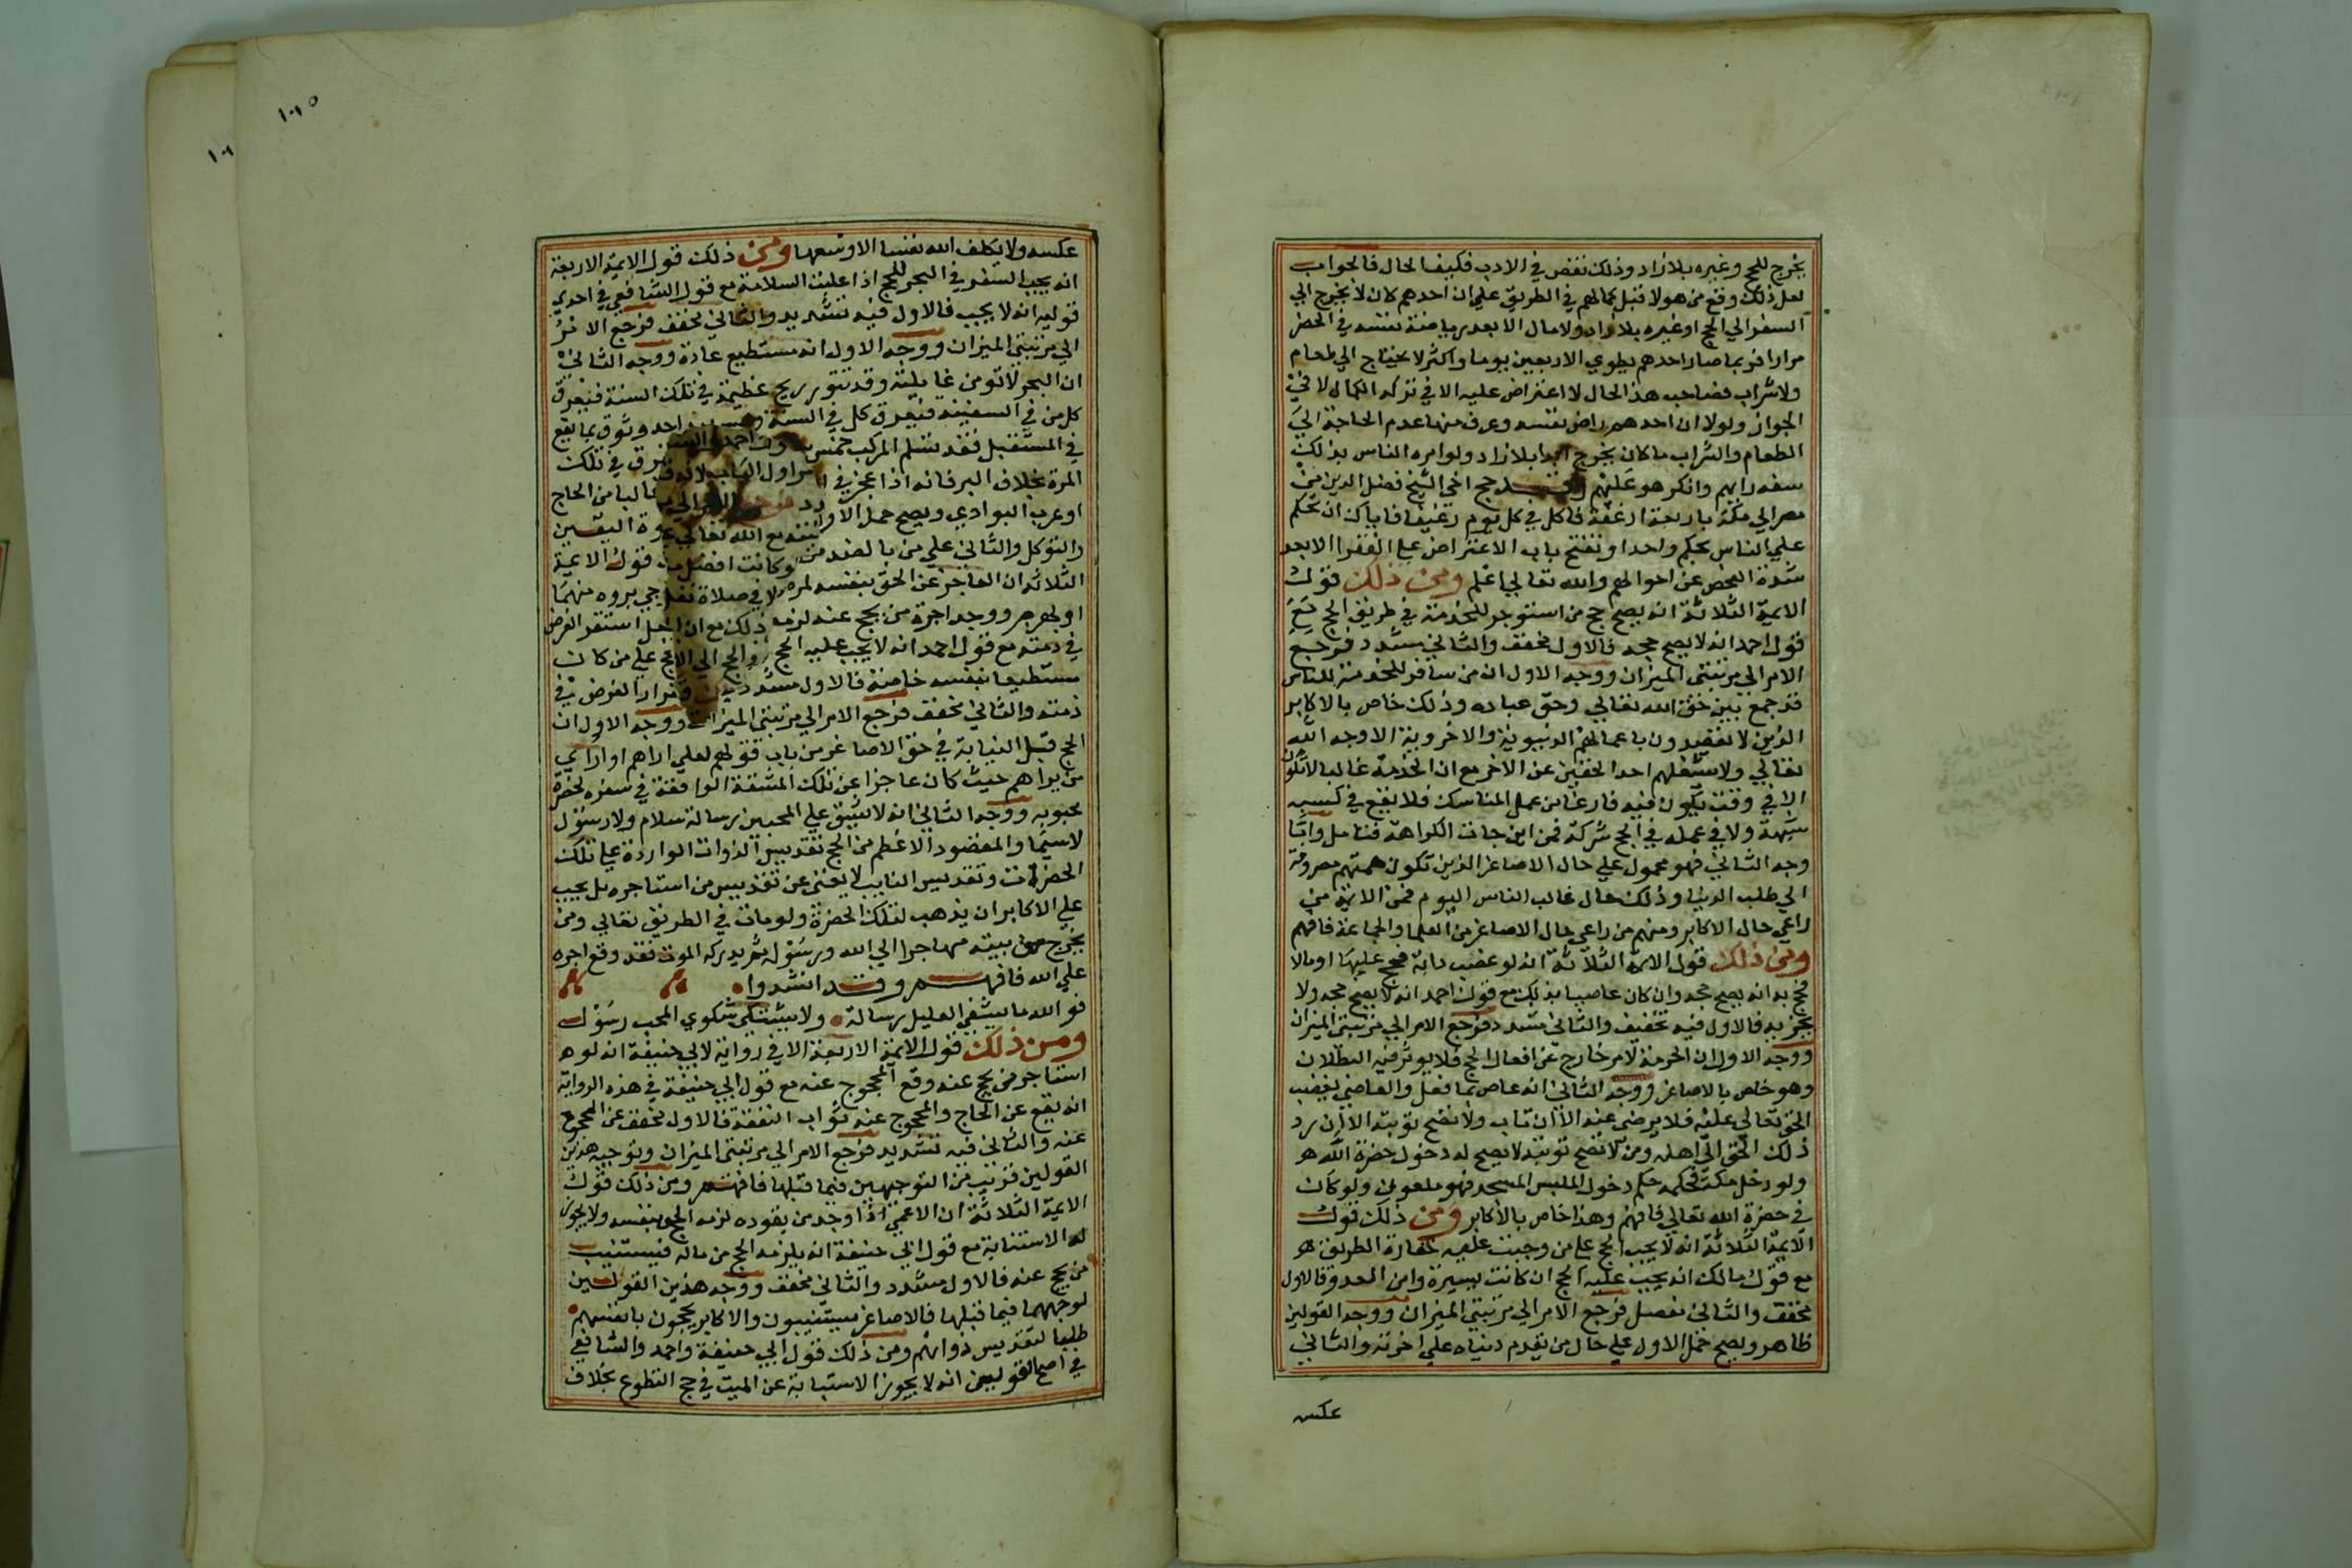 يخرج للحج وغيره بلا زاد وذلك نقص في الادب فكيف الحال فالجواب
لعل ذلك وقع من هولا قبل كمالهم في الطريق علي ان احدهم كان لا يخرج الي
السفر الي الحج او غيره بلا زاد ولا مال الا بعد رياضة نفسه في الحضر
مرارا فربما صار احدهم يطوي الاربعين يوما واكثر لا يحتاج الي طعام
ولا شراب فصاحب هذا الحال لا اعتراض عليه الا في تركه الكمال لا في
الجواز ولولا ان احدهم راض نفسه وعرف منها عدم الحاجة الي
الطعام والشراب ما كان يخرج ابدا بلا زاد ولو امره الناس بذلك
سفه رايهم وانكر هو عليهم وقد حج اخي الشيخ فضل الدين من
مصر الي مكة باربعة ارغفة فاكل في كل يوم رغيفا فاياك ان تحكم
علي الناس بحكم واحد او تفتح باب الاعتراض علي الفقرا الا بعد
شدة الفحص عن احوالهم والله تعالي اعلم ومن ذلك قول
الايمة الثلاثة انه يصح حج من استوجر للخدمة في طريق الحج مع
قول احمد انه لا يصح حجه فالاول مخفف والثاني مشدد فرجع
الامر الي مرتبتي الميزان ووجه الاول ان من سافر للخدمة للناس
قد جمع بين حق الله تعالي وحق عباده وذلك خاص بالاكابر
الذين لا يقصدون باعمالهم الدنيوية والاخروية الا وجه الله
تعالي ولا يشغلهم احد الحقين عن الاخر مع ان الخدمة غالبا لا تكون
الا في وقت يكون فيه فارغا من عمل المناسك فلا يقع في كسبه
شبهة ولا في عمله في الحج شركة فمن اين جات الكراهة فتامل واما
وجه الثاني فهو محمول علي حال الاصاغر الذين تكون همتهم مصروفة
الي طلب الدنيا وذلك حال غالب الناس اليوم فمن الايمة من
راعي حال الاكابر ومنهم من راعي حال الاصاغر من العلما والجماعة فافهم
ومن ذلك قول الايمة الثلاثة انه لو غصب دابة فحج عليها او مالا
فحج به انه يصح حجه وان كان عاصيا بذلك مع قول احمد انه لا يصح حجه ولا
يجزيه فالاول فيه تخفيف والثاني مشدد فرجع الامر الي مرتبتي الميزان
ووجه الاول ان الحرمة لامر خارج عن افعال الحج فلا يوثر فيه البطلان
وهو خاص بالاصاغر ووجه الثاني انه عاص بما فعل والعاصي يغضب
الحق تعالي عليه فلا يرضي عنه الا ان تاب ولا تصح توبته الا ان رد
ذلك الحق الي اهله ومن لا تصح توبته لا يصح له دخول حضرة الله
ولو دخل مكة فحكمه حكم دخول ابليس المسجد فهو ملعون ولو كان
في حضرة الله تعالي فافهم وهذا خاص بالاكابر ومن ذلك قول
الايمة الثلاثة انه لا يجب الحج علي من وجبت عليه خفارة الطريق
مع قول مالك انه يجب عليه الحج ان كانت يسيرة وامن العدو فالاول
مخفف والثاني مفصل فرجع الامر الي مرتبتي الميزان ووجه القولين
ظاهر ويصح حمل الاول علي حال من يقدم دنياه علي اخرته والثاني
عكسه
١٠٥
عكسه ولا يكلف الله نفسا الا وسعها ومن ذلك قول الايمة الاربعة
انه يجب السفر في البحر للحج اذا غلبت السلامة مع قول الشافعي في احدي
قوليه انه لا يجب فالاول فيه تشديد والثاني مخفف فرجع الامر
الي مرتبتي الميزان ووجه الاول انه مستطيع عادة ووجه الثاني
ان البحر لا تومن غايلته وقد تثور ريح عظيمة في تلك السنة فيغرق
كل من في السفينة فيغرق كل في السنة احد وثوق بما يقع
في المستقبل فقد تسلم المركب خمس
المرة بخلاف البر فانه اذا عجز في اول
او عرب البوادي ويصح حمل الاول غالبا من الحاج
والتوكل والثاني علي من بالضد من قوة اليقين
الثلاثة ان العاجز عن الحج بنفسه قول الايمة
او لهرم ووجد اجرة من يحج عنه لزمه ذلك استقر الفرض
في ذمته مع قول احمد انه لا يجب عليه الحج علي من كان
مستطيعا بنفسه خاصة فالاول مشدد الفرض في
ذمته والثاني مخفف فرجع الامر الي مرتبتي الميزان ووجه الاول ان
الحج قبل النيابة في حق الاصاغر من باب قولهم لعلي اراهم او اري
من يراهم حيث كان عاجزا عن تلك المشقة الواقعة في سفره لحضرة
محبوبه ووجه الثاني انه لا يشق علي المحبين رسالة سلام ولا رسول
لا سيما والمقصود الاعظم من الحج تقديس الذوات الواردة علي تلك
الحضرة وتقديس النايب لا يغني عن تقديس من استاجره بل يجب
علي الاكابر ان يذهب لتلك الحضرة ولو مات في الطريق تعالي ومن
يخرج من بيته مهاجرا الي الله ورسوله ثم يدركه الموت فقد وقع اجره
علي الله فافهم وقد انشدوا
فو الله ما يشفي العليل رسالة ولا يشتكي شكوي المحب رسول
ومن ذلك قول الايمة الاربعة الا في رواية لابي حنيفة انه لو
استاجر من يحج عنه وقع المحجوج عنه مع قول ابي حنيفة في هذه الرواية
انه يقع عن الحاج والمحجوج عنه ثواب النفقة فالاول مخفف عن المحجوج
عنه والثاني فيه تشديد فرجع الامر الي مرتبتي الميزان وتوجيه هذين
القولين قريب من التوجيهين فيما قبلها فافهم ومن ذلك قول
الايمة الثلاثة ان الاعمي اذا وجد من يقوده لزمه الحج بنفسه ولا يجوز
له الاستنابة مع قول ابي حنيفة انه يلزمه الحج من ماله فيستنيب
من يحج عنه فالاول مشدد والثاني مخفف ووجه هذين القولين
لوجههما فيما قبلها فالاصاغر يستنيبون والاكابر يحجون بانفسهم
طلبا لتقديس ذواتهم ومن ذلك قول ابي حنيفة واحمد والشافعي
في اصح القولين انه لا يجوز الاستنابة عن الميت في حج التطوع بخلاف